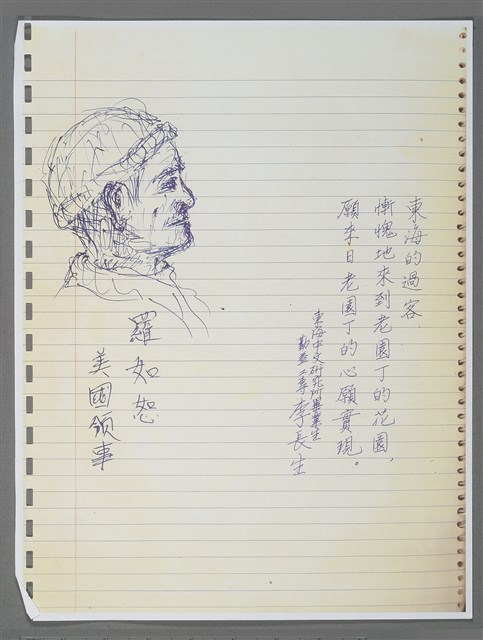 東海的過客
慚愧地來到老園丁的花園，
願來日老園丁的心願實現。
東海中文研究所畢業生
勤益工專李長生
羅如恕
美國領事